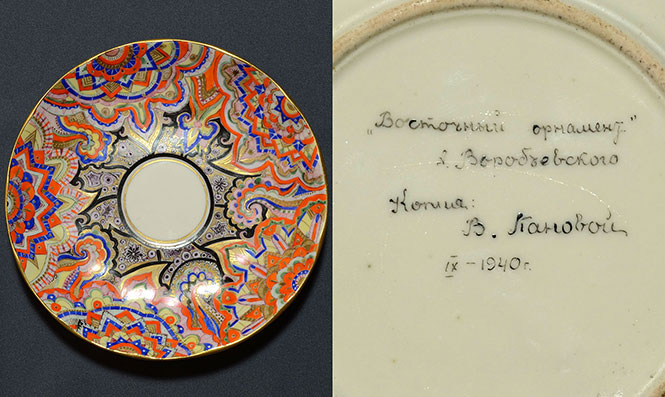 „Восточный орнамент"
х. Воробьевского
Копия:
В. Пановой
IX – 1940 г.